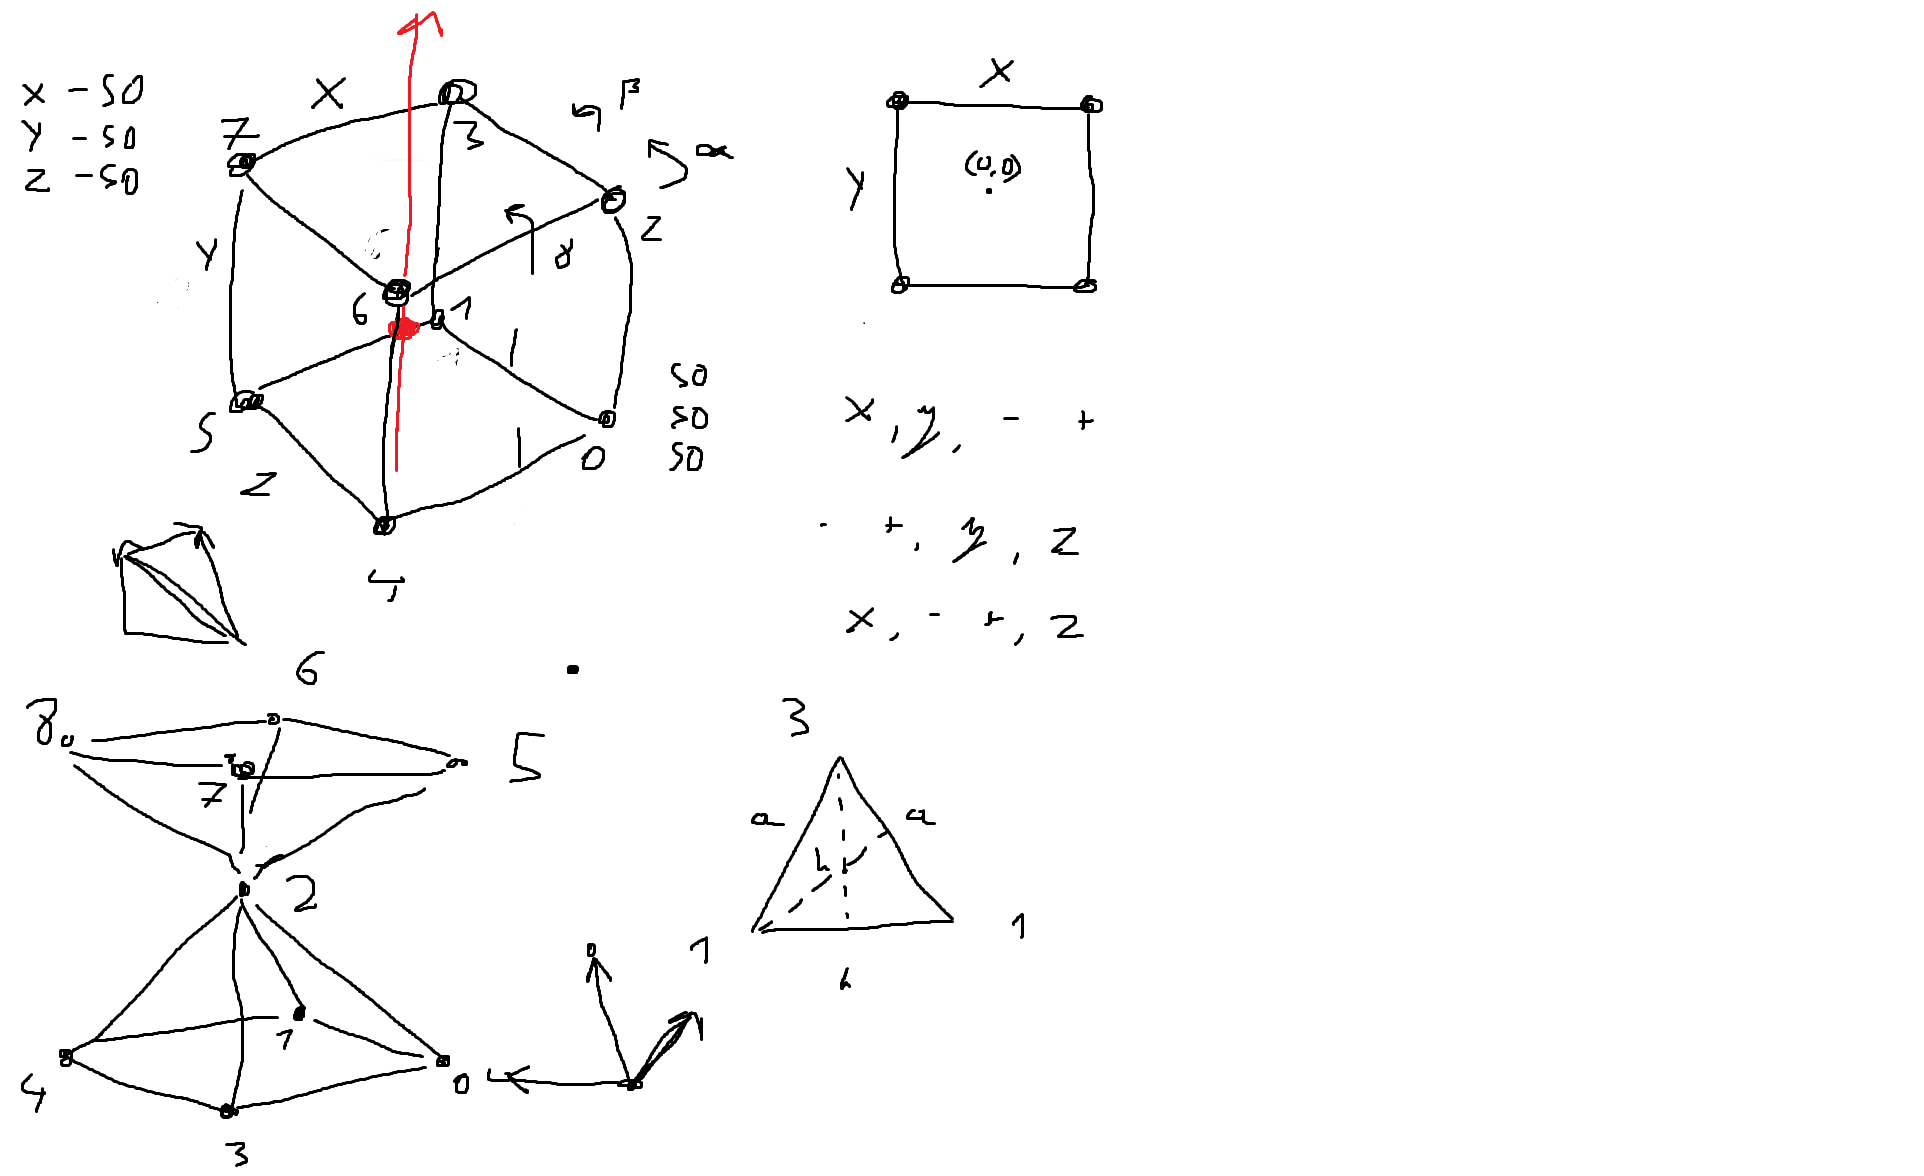 x - 50
y - 50
z - 50
X
7
3
β
α
2
γ
Y
6
1
5
0
50
50
50
Z
4
X
(0,0)
Y
x, y, - +
- +, y, z
x, - +, z
6
8
7
5
2
1
4
0
3
3
a
a
h
1
1